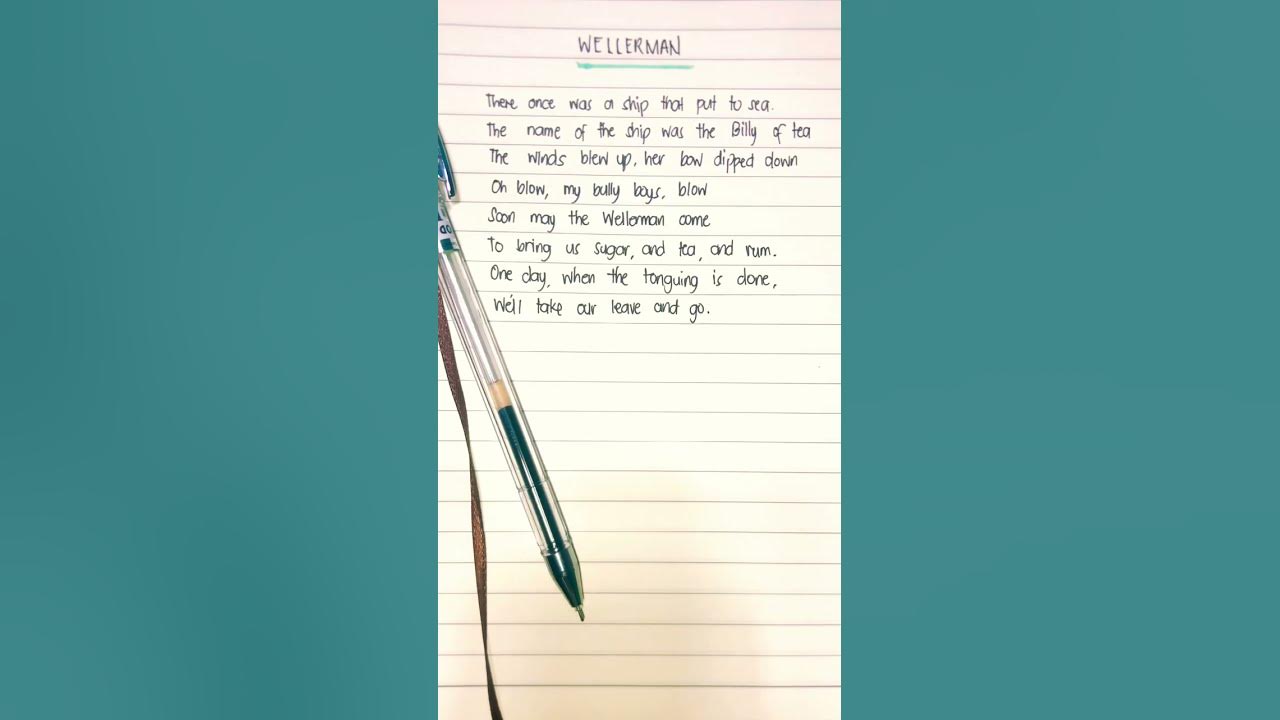 WELLERMAN
There once was a ship that put to sea.
The name of the ship was the Billy of tea
The winds blew up, her bow dipped down
Oh blow, my bully boys, blow
Soon may the Wellerman come
To bring us sugar, and tea, and rum.
One day, when the tonguing is done,
We'll take our leave and go.